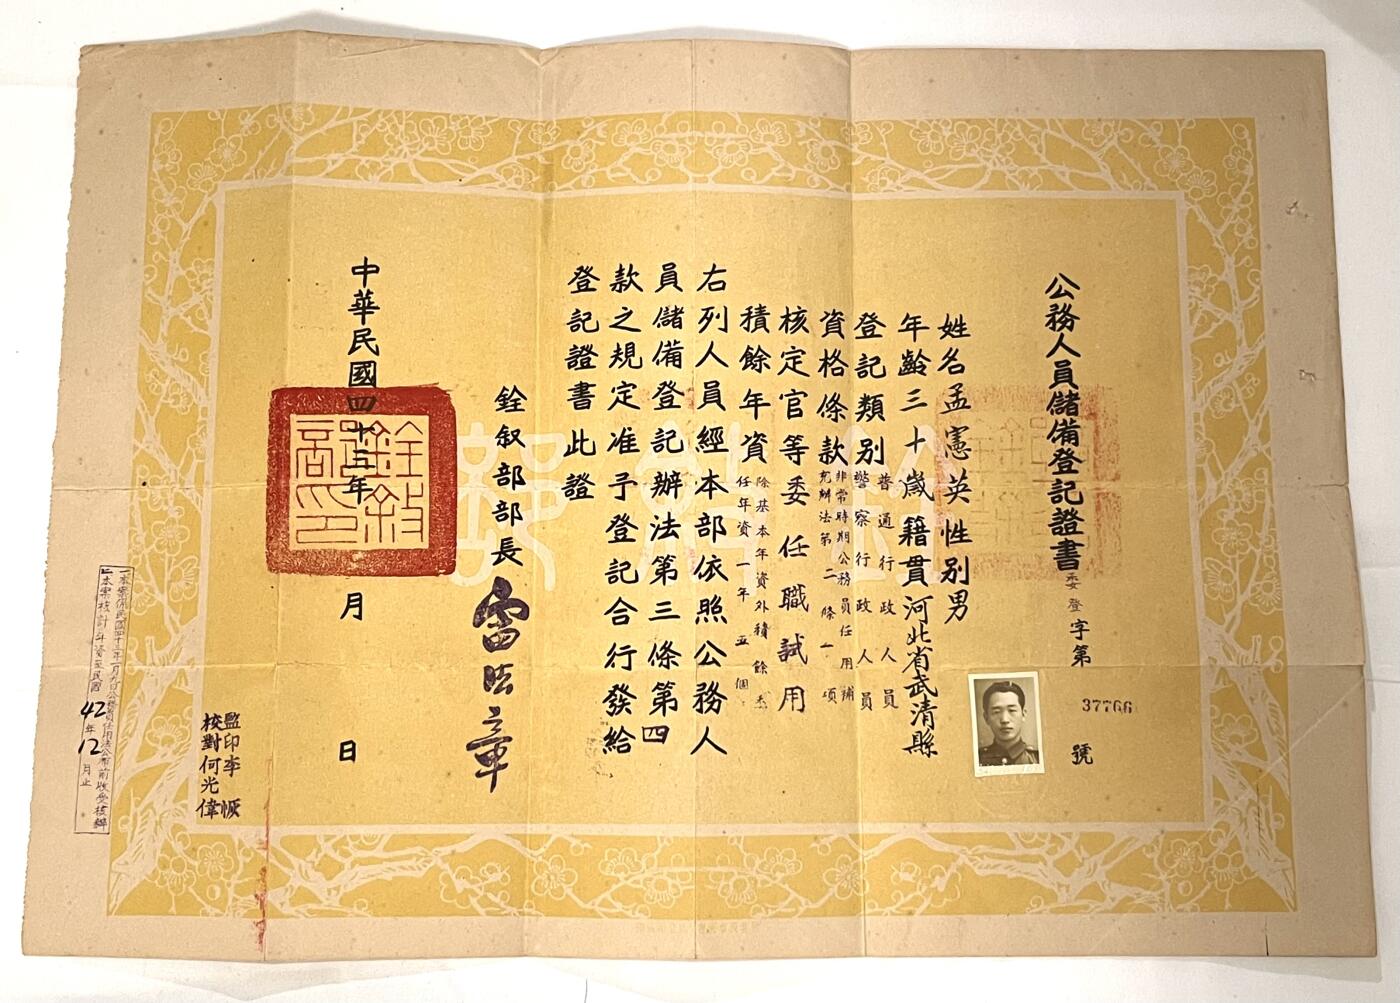 公務人員儲備登記證書
委登字第 37766 號
姓名孟憲英性別男
年齡三十歲籍貫河北省武清縣
登記類別普通行政人員
警察行政人員
資格條款非常時期公務員任用補
充辦法第二條一項
核定官等委任職試用
積餘年資除基本年資外積餘委
任年資一年五個
右列人員經本部依照公務人
員儲備登記辦法第三條第四
款之規定准予登記合行發給
登記證書此證
銓敘部部長雷法章
中華民國四十三年 月 日
銓敘部印
監印李恢
校對何光偉
一本案係民國四十三年一月九日公務員任用法公布前收受核辦
二本案核計年資至民國42年12月止